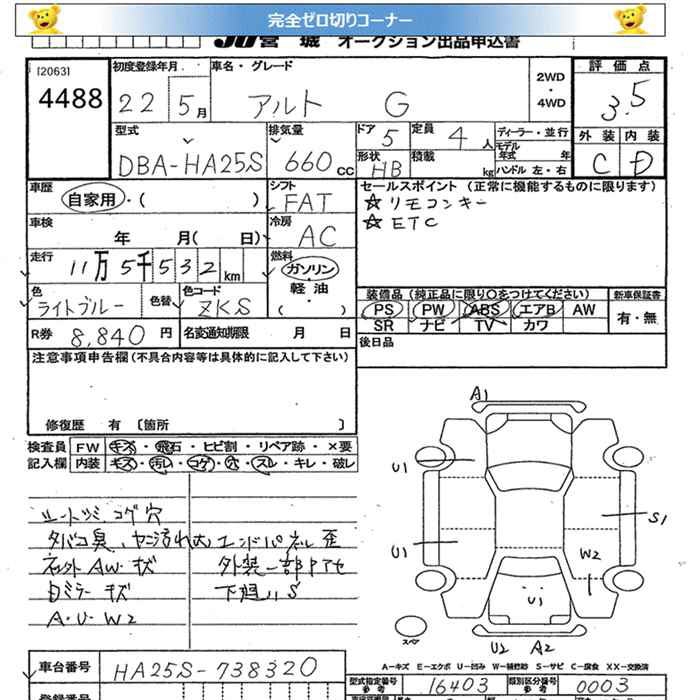 完全ゼロ切りコーナー
JU宮城 オークション出品申込書
[2063]
4488
初度登録年月
22 5月
車名・グレード
アルト G
2WD・4WD
評価点
3.5
外装 内装
C D
型式
DBA-HA25S
排気量
660 CC
ドア 5
定員 4人
形状 HB
積載 kg
ディーラー・並行
モデル年式 年
ハンドル 左・右
車歴
自家用・( )
シフト
FAT
車検
年 月( 日)
冷房
AC
走行
11万5千532km
燃料
ガソリン
軽油・( )
色
ライトブルー
色替
色コード
ZKS
R券 8,840円
名変通知期限 月 日
セールスポイント (正常に機能するものに限ります)
☆リモコンキー
☆ETC
装備品(純正品に限り○をつけてください)
PS PW ABS エアB AW
SR ナビ TV カワ
新車保証書
有・無
後日品
注意事項申告欄(不具合内容等は具体的に記入して下さい)
修復歴 有 [箇所 ]
検査員 FW キズ・飛石・ヒビ割・リペア跡・×要
記入欄 内装 キズ・汚レ・コゲ・穴・スレ・キレ・破レ
シートシミ コゲ穴
タバコ臭、ヤニ汚れ大
エンドパネル歪
外装一部ボケ
下廻りS
A・U・W2
A1
U1
U1
S1
W2
U1
U2 A2
スペア
A－キズ E－エクボ U－凹み W－補修跡 S－サビ C－腐食 XX－交換済
車台番号 HA25S-738320
型式指定番号 参考 16403
類別区分番号 参考 0003
登録番号